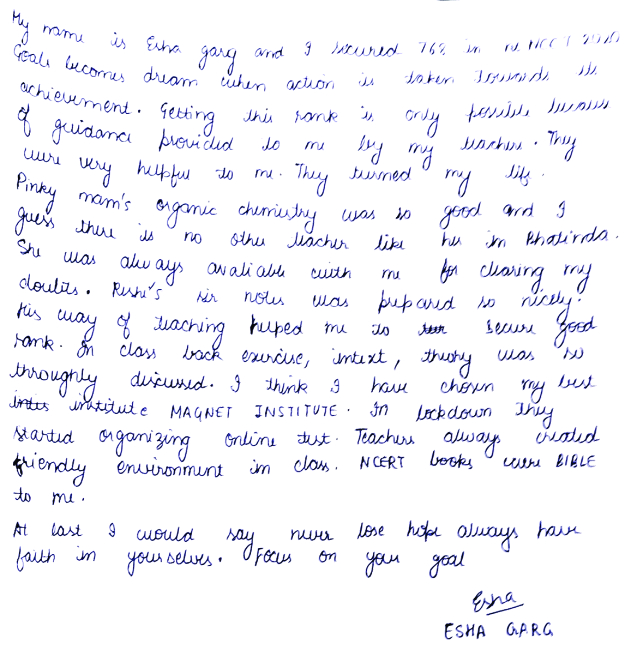 My name is Esha garg and I secured 768 in
Goals becomes dream when action is taken towards its
achievement. Getting this rank is only possible because
of guidance provided to me by my teacher. They
were very helpful to me. They turned my life.
Pinky mam's organic chemistry was so good and I
guess there is no other teacher like her in Bhatinda.
She was always avaliable with me for clearing my
doubts. Rishi's sir notes was prepared so nicely.
His way of teaching helped me to secure good
rank. In class back exercise, intext, theory was so
throughly discussed. I think I have chosen my best
institute MAGNET INSTITUTE. In lockdown They
started organizing online test. Teachers always created
friendly environment in class. NCERT books were BIBLE
to me.
At last I would say never lose hope always have
faith in yourselves. Focus on your goal
Esha
ESHA GARG